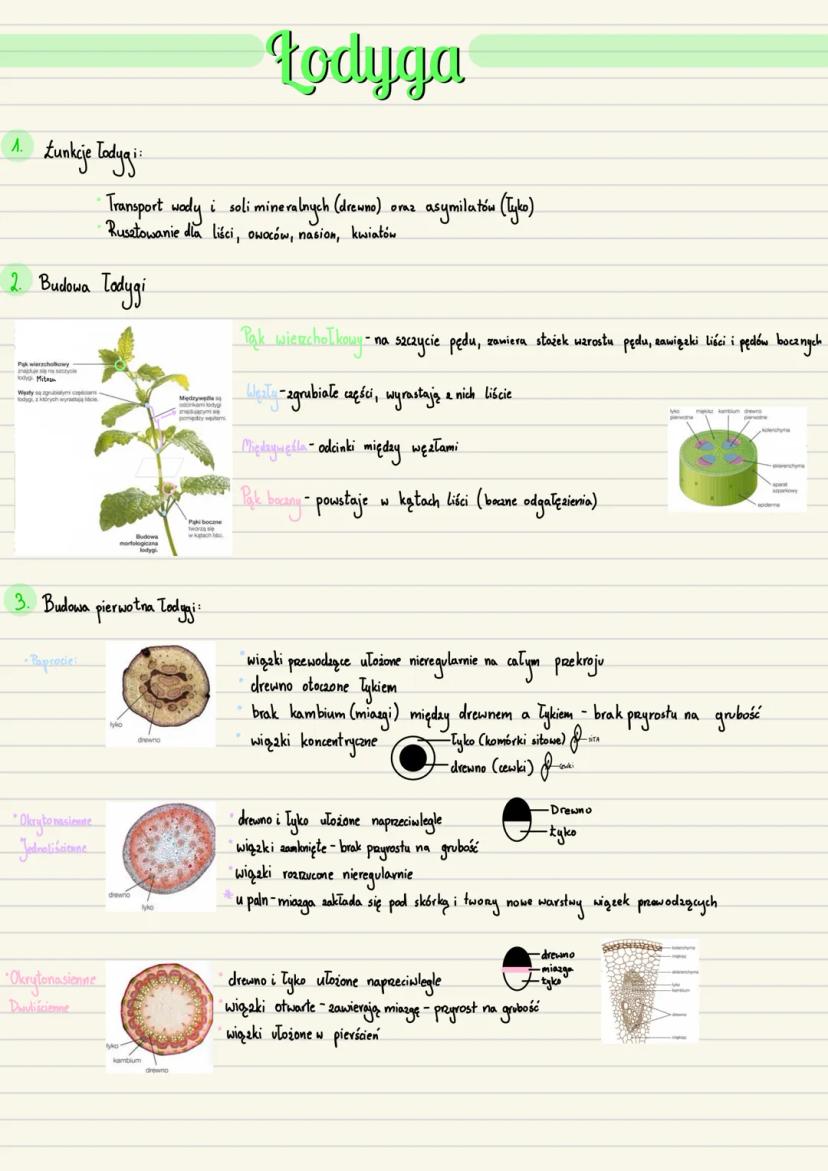 Łodyga
1. Funkcje łodygi:
Transport wody i soli mineralnych (drewno) oraz asymilatów (łyko)
Rusztowanie dla liści, owoców, nasion, kwiatów
2. Budowa łodygi
Pąk wierzchołkowy
znajduje się na szczycie
łodygi. Mitoza
Węzły są zgrubiałymi częściami
łodygi, z których wyrastają liście.
Międzywęźla są
odcinkami łodygi
znajdującymi się
pomiędzy węzłami.
Pąki boczne
tworzą się
w kątach liści.
Budowa
morfologiczna
łodygi.
Pąk wierzchołkowy - na szczycie pędu, zawiera stożek wzrostu pędu, zawiązki liści i pędów bocznych
Węzły - zgrubiałe części, wyrastają z nich liście
Międzywęźla - odcinki między węzłami
Pąk boczny - powstaje w kątach liści (boczne odgałęzienia)
łyko pierwotne
miękisz
kambium
drewno pierwotne
kolenchyma
sklerenchyma
aparat szparkowy
epiderma
3. Budowa pierwotna łodygi:
Paprocie:
łyko
drewno
wiązki przewodzące ułożone nieregularnie na całym przekroju
drewno otoczone łykiem
brak kambium (miazgi) między drewnem a łykiem - brak przyrostu na grubość
wiązki koncentryczne
łyko (komórki sitowe) SITA
drewno (cewki) cewki
Okrytonasienne
Jednoliścienne
drewno
łyko
drewno i łyko ułożone naprzeciwlegle
Drewno
Łyko
wiązki zamknięte - brak przyrostu na grubość
wiązki rozrzucone nieregularnie
* u palm - miazga zakłada się pod skórką i tworzy nowe warstwy wiązek przewodzących
Okrytonasienne
Dwuliścienne
łyko
kambium
drewno
drewno i łyko ułożone naprzeciwlegle
drewno
miazga
łyko
wiązki otwarte - zawierają miazgę - przyrost na grubość
wiązki ułożone w pierścień
kolenchyma
miękisz
sklerenchyma
łyko
kambium
drewno
miękisz